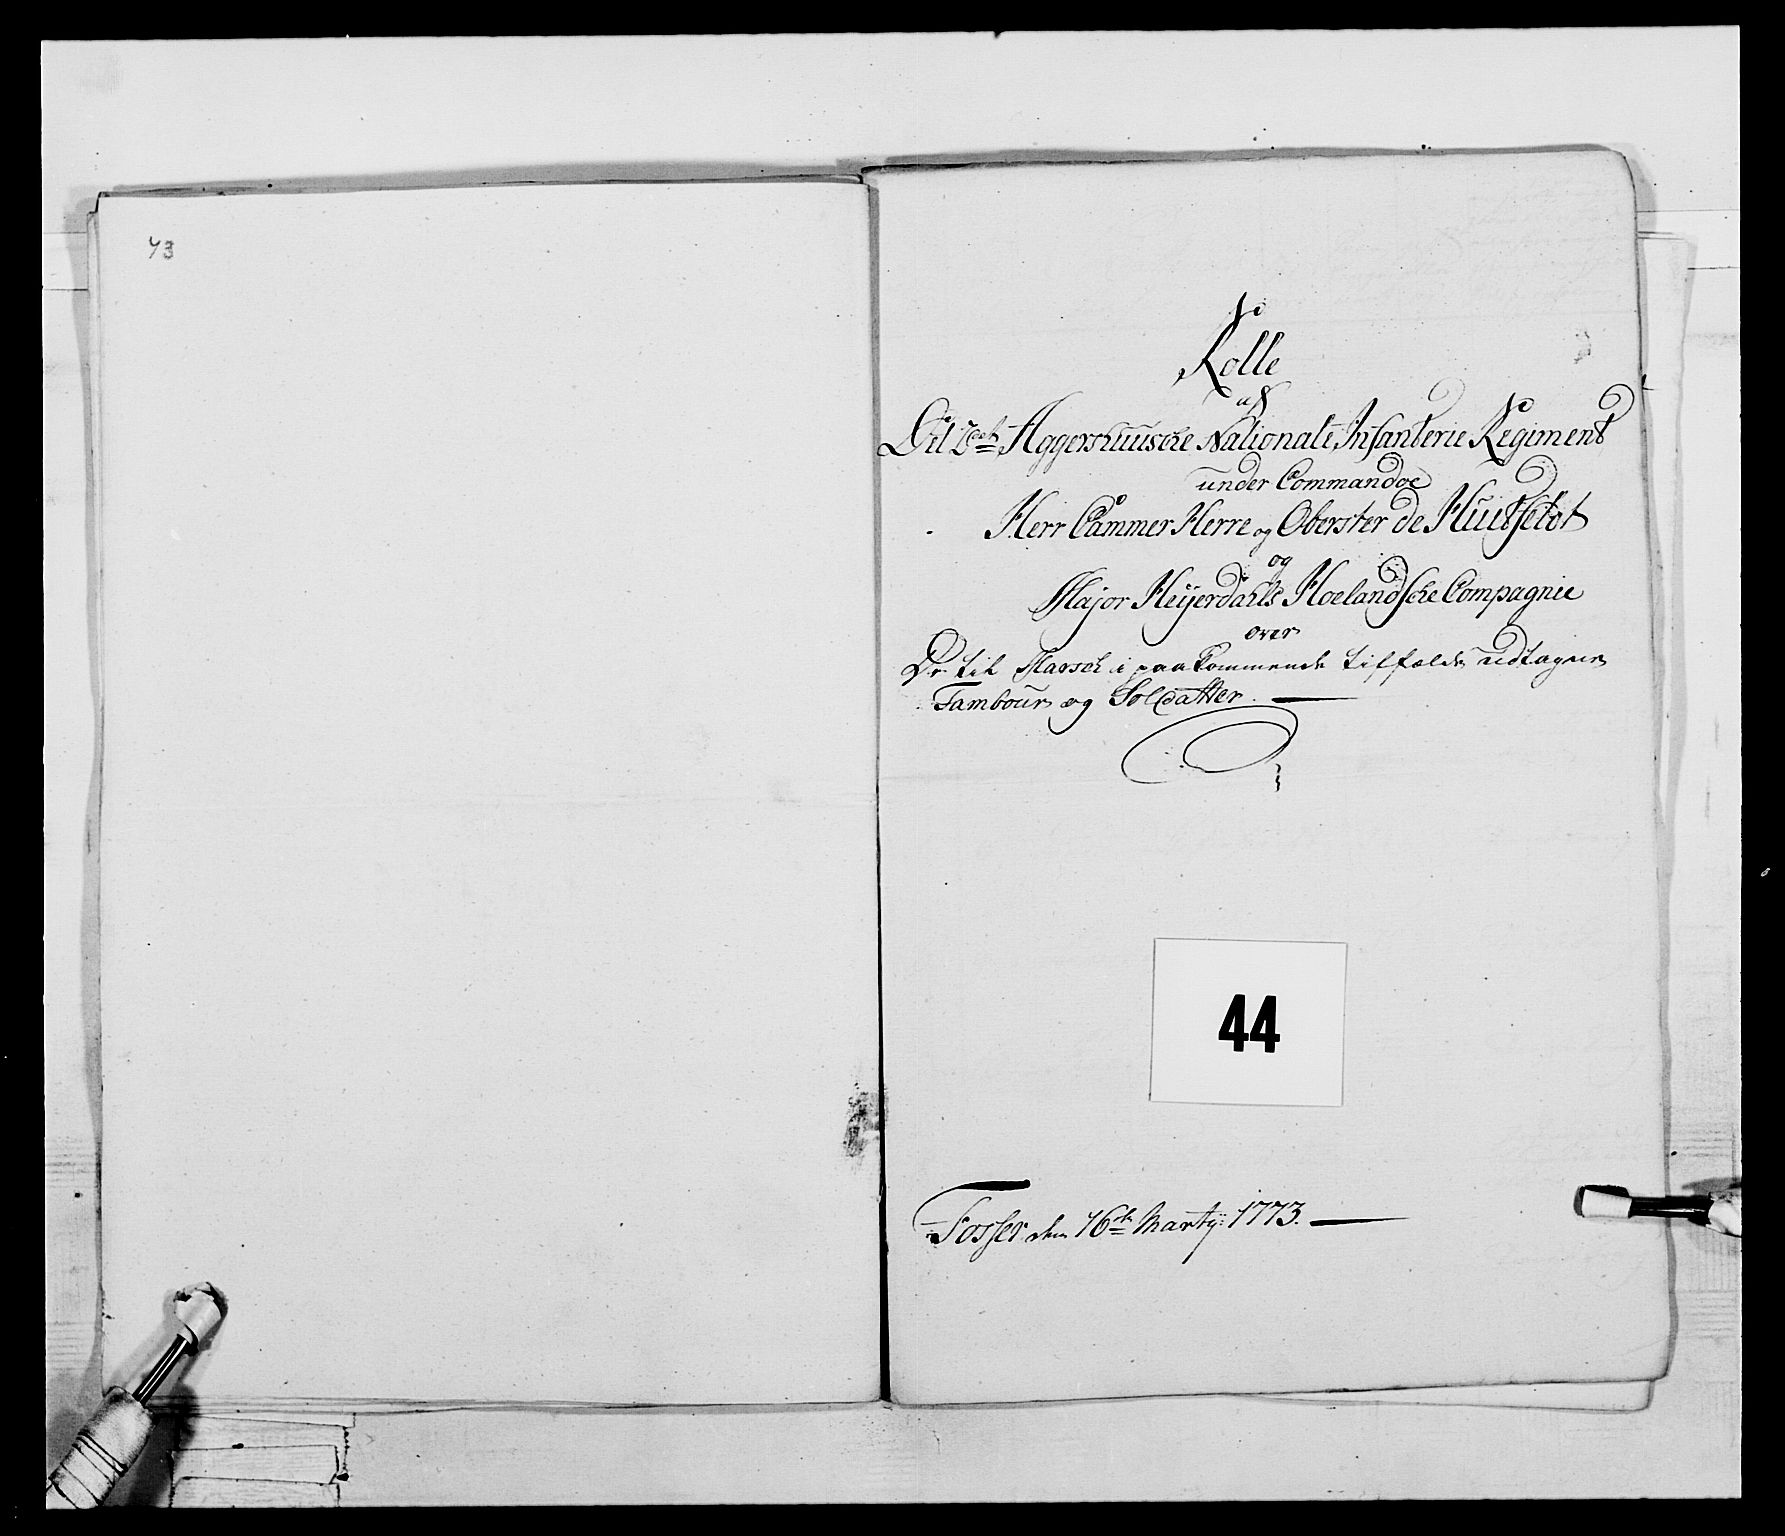 43
Rolle
af
Det 2det Aggershuusche Nationale Infanterie Regiment
under Commandoe
Herr Cammer Herre og Oberster de Huitfeldt
og
Major Heyerdahls Hoelandsche Compagnie
over
De til Marsch i paakommende tilfælde udtagne
Tambour og Soldatter.
44
Fosser den 16de Marty: 1773.